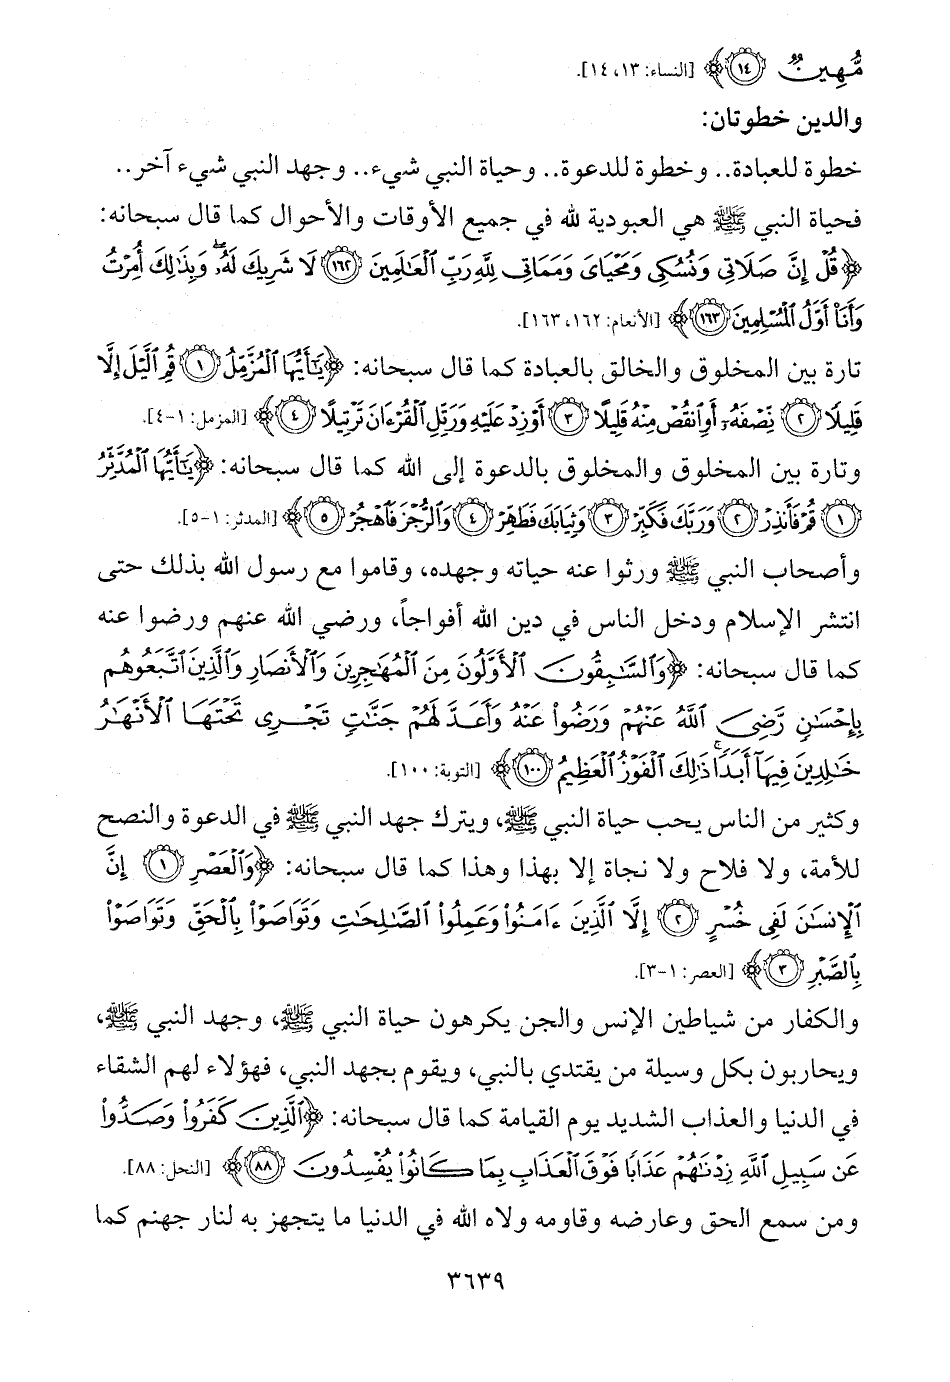 مُّهِينٌ ﴿١٤﴾ [النساء: ١٣، ١٤].
والدين خطوتان:
خطوة للعبادة.. وخطوة للدعوة.. وحياة النبي شيء.. وجهد النبي شيء آخر..
فحياة النبي ﷺ هي العبودية لله في جميع الأوقات والأحوال كما قال سبحانه:
﴿قُلْ إِنَّ صَلَاتِي وَنُسُكِي وَمَحْيَايَ وَمَمَاتِي لِلَّهِ رَبِّ ٱلْعَٰلَمِينَ ﴿١٦٢﴾ لَا شَرِيكَ لَهُۥ ۖ وَبِذَٰلِكَ أُمِرْتُ
وَأَنَا۠ أَوَّلُ ٱلْمُسْلِمِينَ ﴿١٦٣﴾ [الأنعام: ١٦٢، ١٦٣].
تارة بين المخلوق والخالق بالعبادة كما قال سبحانه: ﴿يَٰٓأَيُّهَا ٱلْمُزَّمِّلُ ﴿١﴾ قُمِ ٱلَّيْلَ إِلَّا
قَلِيلًا ﴿٢﴾ نِّصْفَهُۥٓ أَوِ ٱنقُصْ مِنْهُ قَلِيلًا ﴿٣﴾ أَوْ زِدْ عَلَيْهِ وَرَتِّلِ ٱلْقُرْءَانَ تَرْتِيلًا ﴿٤﴾ [المزمل: ١-٤].
وتارة بين المخلوق والمخلوق بالدعوة إلى الله كما قال سبحانه: ﴿يَٰٓأَيُّهَا ٱلْمُدَّثِّرُ
﴿١﴾ قُمْ فَأَنذِرْ ﴿٢﴾ وَرَبَّكَ فَكَبِّرْ ﴿٣﴾ وَثِيَابَكَ فَطَهِّرْ ﴿٤﴾ وَٱلرُّجْزَ فَٱهْجُرْ ﴿٥﴾ [المدثر: ١-٥].
وأصحاب النبي ﷺ ورثوا عنه حياته وجهده، وقاموا مع رسول الله بذلك حتى
انتشر الإسلام ودخل الناس في دين الله أفواجاً، ورضي الله عنهم ورضوا عنه
كما قال سبحانه: ﴿وَٱلسَّٰبِقُونَ ٱلْأَوَّلُونَ مِنَ ٱلْمُهَٰجِرِينَ وَٱلْأَنصَارِ وَٱلَّذِينَ ٱتَّبَعُوهُم
بِإِحْسَٰنٍ رَّضِيَ ٱللَّهُ عَنْهُمْ وَرَضُوا۟ عَنْهُ وَأَعَدَّ لَهُمْ جَنَّٰتٍ تَجْرِى تَحْتَهَا ٱلْأَنْهَٰرُ
خَٰلِدِينَ فِيهَآ أَبَدًا ۚ ذَٰلِكَ ٱلْفَوْزُ ٱلْعَظِيمُ ﴿١٠٠﴾ [التوبة: ١٠٠].
وكثير من الناس يحب حياة النبي ﷺ، ويترك جهد النبي ﷺ في الدعوة والنصح
للأمة، ولا فلاح ولا نجاة إلا بهذا وهذا كما قال سبحانه: ﴿وَٱلْعَصْرِ ﴿١﴾ إِنَّ
ٱلْإِنسَٰنَ لَفِى خُسْرٍ ﴿٢﴾ إِلَّا ٱلَّذِينَ ءَامَنُوا۟ وَعَمِلُوا۟ ٱلصَّٰلِحَٰتِ وَتَوَاصَوْا۟ بِٱلْحَقِّ وَتَوَاصَوْا۟
بِٱلصَّبْرِ ﴿٣﴾ [العصر: ١-٣].
والكفار من شياطين الإنس والجن يكرهون حياة النبي ﷺ، وجهد النبي ﷺ،
ويحاربون بكل وسيلة من يقتدي بالنبي، ويقوم بجهد النبي، فهؤلاء لهم الشقاء
في الدنيا والعذاب الشديد يوم القيامة كما قال سبحانه: ﴿ٱلَّذِينَ كَفَرُوا۟ وَصَدُّوا۟
عَن سَبِيلِ ٱللَّهِ زِدْنَٰهُمْ عَذَابًا فَوْقَ ٱلْعَذَابِ بِمَا كَانُوا۟ يُفْسِدُونَ ﴿٨٨﴾ [النحل: ٨٨].
ومن سمع الحق وعارضه وقاومه ولاه الله في الدنيا ما يتجهز به لنار جهنم كما
٣٦٣٩